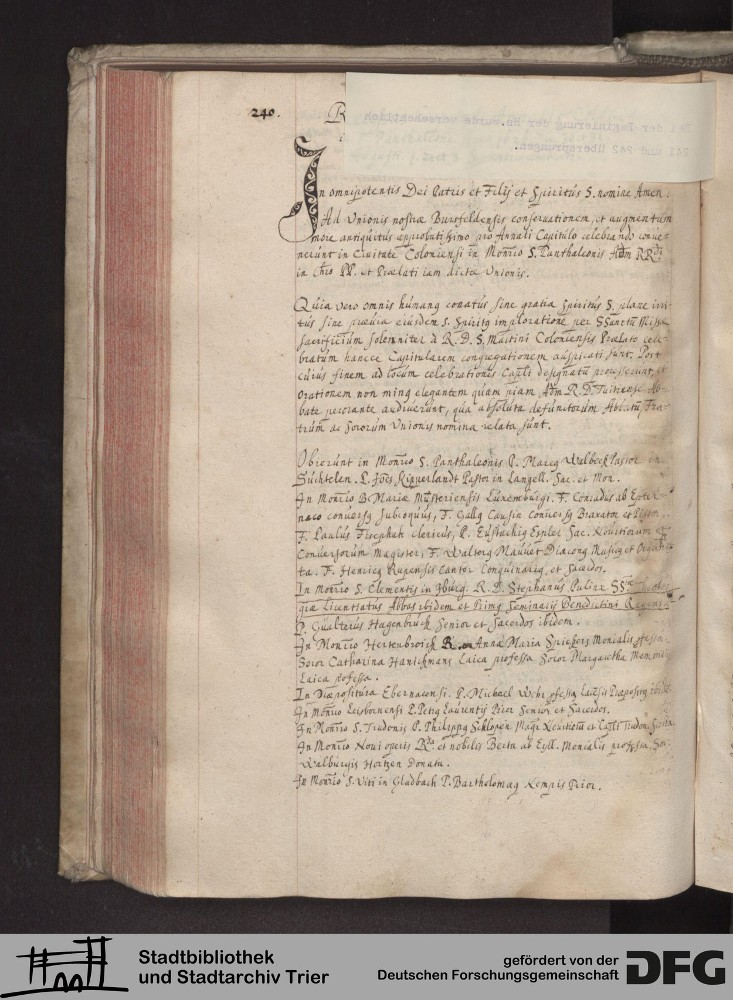 240. R
In omnipotentis Dei Patris et Filij et Spiritûs S. nomine Amen.
Ad Unionis nostræ Bursfeldensis conseruationem, et augmentum
more antiquitus approbatissimo pro Annali Capitulo celebrando conue-
nerunt in Ciuitate Coloniensi in Monrio S. Panthaleonis Adm RRdi
in Chro PP. et Prælati iam dictæ Unionis.
Quia vero omnis humang conatus sine gratia Spiritûs S. plane irri-
tus sine præuia eiusdem S. Spiritg imploratione per SSanctu Missæ
sacrificium solemniter à R. D. S. Martini Coloniensis Prælato cele-
bratum hancce Capitularem congregationem auspicati sunt. Post
cuius finem ad locum celebrationis Capli designatu processerunt, et
orationem non ming elegantem quam piam Adm R. D. Tuitiense Ab-
bate perorante audiuerunt, qua absoluta defunctorum Abbatu, Fra-
trum ac Sororum Unionis nomina relata sunt.
Obierunt in Monrio S. Panthaleonis P. Marcg Walbeck Pastor in
Suchtelen. P. Joes Kipperlandt Pastor in Langell. Sac. et Mon.
In Monrio B. Mariæ Mysteriensis Luxemburgi. F. Conradus ab Epter-
naco conuersg Subcoquus, F. Gallg Causin Conuersg Braxator et Pistor.
F. Paulus Fischet clericus, P. Eustachig Espler Sac. Nouitiorum et
Conuersorum Magister, F. Waltorg Mauuet Diacong Musicg et Organis-
ta. F. Henricg Rupensis Cantor Conquinarig, et Sacerdos.
In Monrio S. Clementis in Iburg. R. D. Stephanus Pulinx SSmæ Theolo-
giæ Licentiatus Abbas ibidem et Primg Seminarij Benedictini Regens
P. Gualterus Hagenbruck Senior et Sacerdos ibidem.
In Monrio Hertenbroick Anna Maria Spickers Monialis professa
Soror Catharina Hanickmans Laica professa Soror Margaretha
Laica professa.
In Præpositura Ebernacensi. P. Michael Præpositg ibid.
In Monrio Leisbornensi P. Petrg Laurentij Prior Senior et Sacerdos.
In Monrio S. Trudonis P. Philippg Schlopen Magr Nouitioru et Capli Trudon.
In Monrio Noui operis Rda et nobilis Berta ab Eyll. Monialis professa, Sor.
Walburgis Hertzen Donata.
In Monrio S. Viti in Gladbach P. Bartholomæg Kempis Prior.
Bei der Paginierung der Hs. wurde versehentlich
241 und 242 übersprungen.
Stadtbibliothek
und Stadtarchiv Trier
gefördert von der
Deutschen Forschungsgemeinschaft
DFG